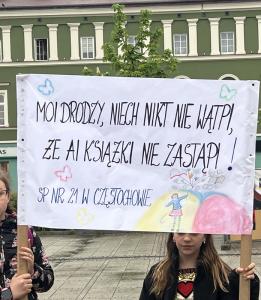 MOI DRODZY, NIECH NIKT NIE WĄTPI,
ŻE AI KSIĄŻKI NIE ZASTĄPI!
SP NR 21 W CZĘSTOCHOWIE